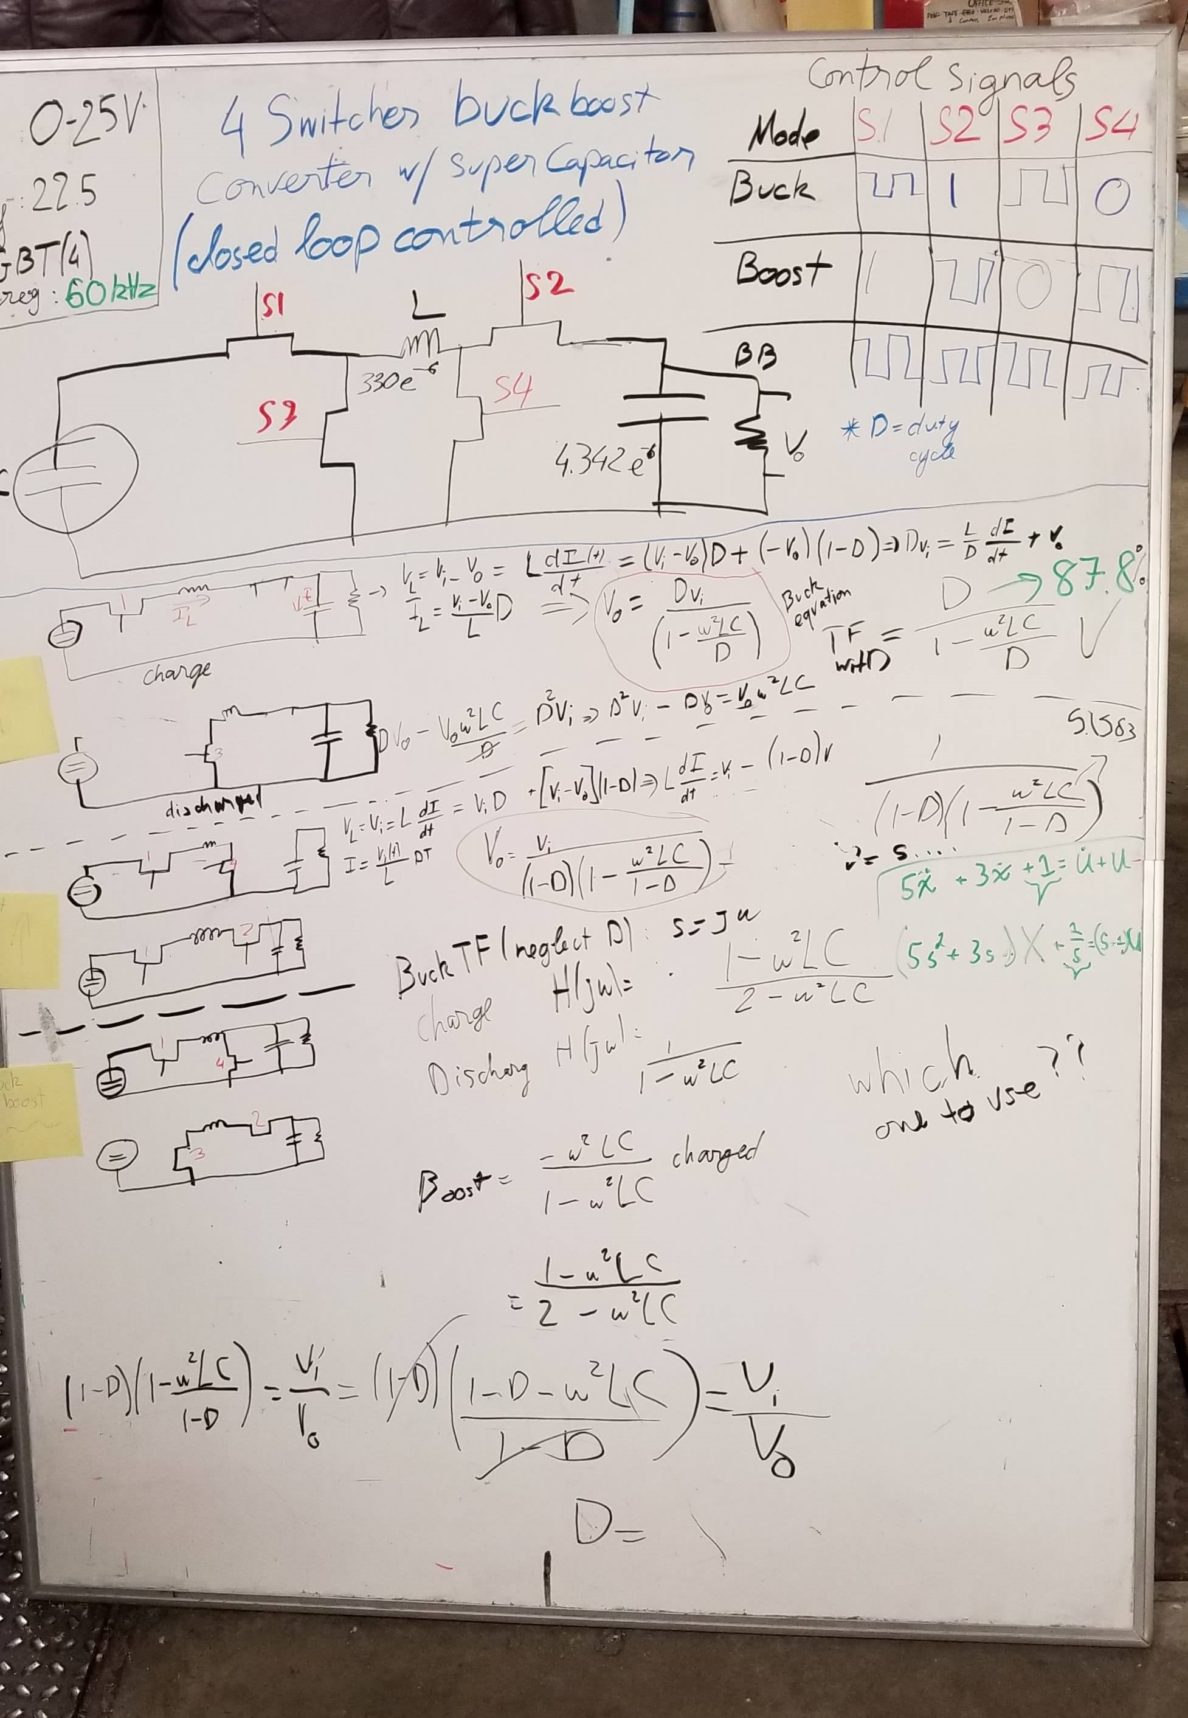 0-25V
: 22.5
GBT(4)
reg : 60kHz
4 Switches buckboost
Converter w/ super Capacitor
(closed loop controlled)
Control Signals
Mode S1 S2 S3 S4
Buck 1 0
Boost 1 0
BB
* D = duty
cycle
S1
L
S2
330e⁻⁶
S3
S4
4.342e⁻⁶
V₀
V_L = Vi - V₀ = L dI(t)/dt = (Vi-V₀)D + (-V₀)(1-D) ⇒ DVi = L/D dI/dt + V₀
I_L = (Vi-V₀)/L D ⇒ V₀ = DVi/(1 - w²LC/D)
Buck
equation
TF = D/(1 - w²LC/D) → 87.8%
I_L
charge
DV₀ - V₀w²LC/D = D²Vi ⇒ D²Vi - DV₀ = V₀w²LC
3
discharged
5.1583
V_L = Vi = L dI/dt = ViD + [Vi-V₀](1-D) ⇒ L dI/dt = Vi - (1-D)V
I = Vi(t)/L DT
V₀ = Vi/((1-D)(1 - w²LC/(1-D)))
1/((1-D)(1 - w²LC/(1-D)))
5ẍ + 3ẋ + 1 = u̇ + u
Buck TF (neglect D) : s = jw
charge H(jw) = (1-w²LC)/(2-w²LC)
(5s² + 3s)X + 1/s
Discharg H(jw) = 1/(1-w²LC)
which
one to use??
4
2
3
boost
Boost = -w²LC/(1-w²LC) charged
= (1-w²LC)/(2-w²LC)
(1-D)(1 - w²LC/(1-D)) = Vi/V₀ = (1-D)((1-D-w²LC)/(1-D)) = Vi/V₀
D =